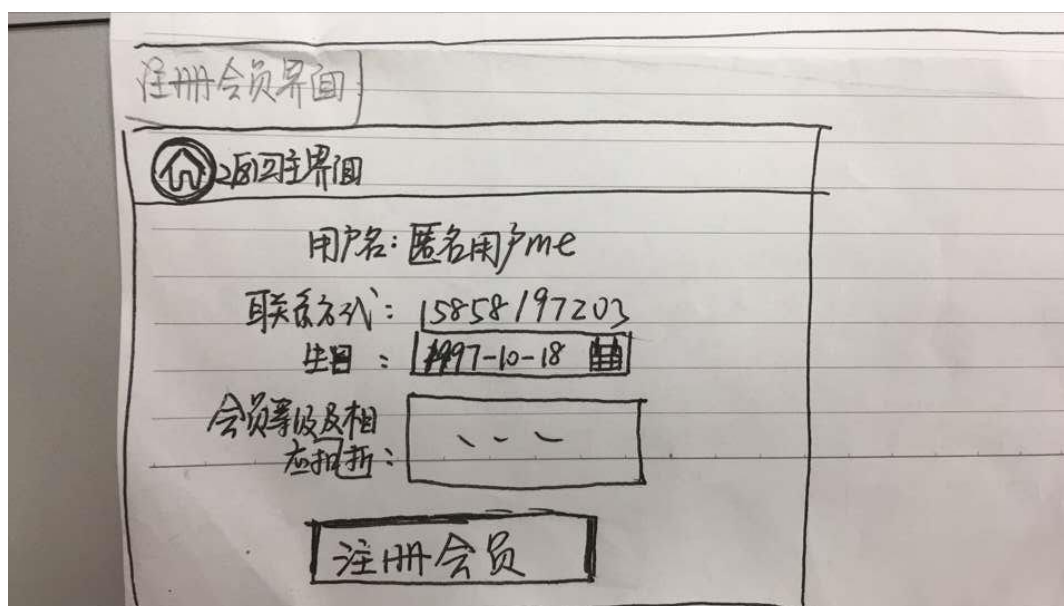 注册会员界面
返回主界面
用户名：匿名用户me
联系方式：15858197203
生日：1997-10-18
会员等级及相
应扣折：
注册会员